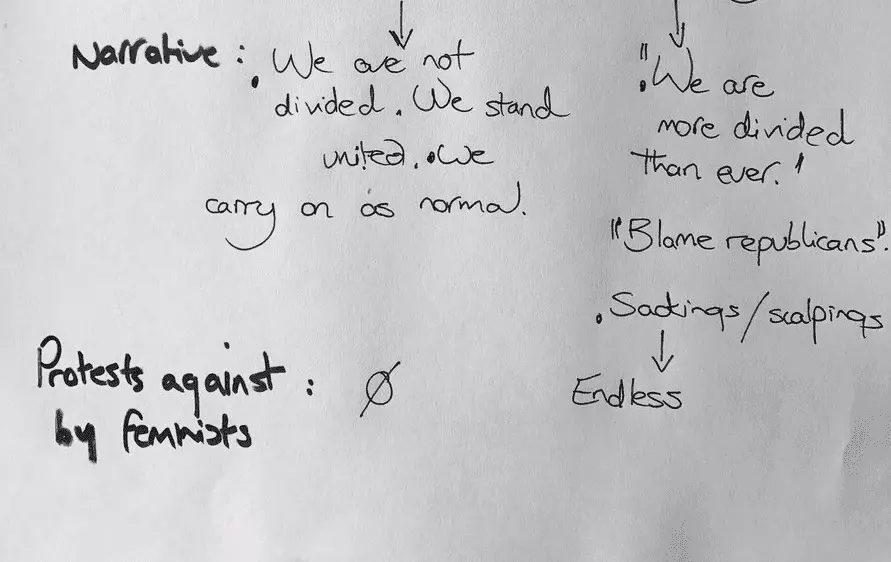 Narrative :
. We are not
divided. We stand
united. . We
carry on as normal.
". We are
more divided
than ever. '
"Blame republicans".
. Sackings/scalpings
Protests against :
by feminists
Ø
Endless